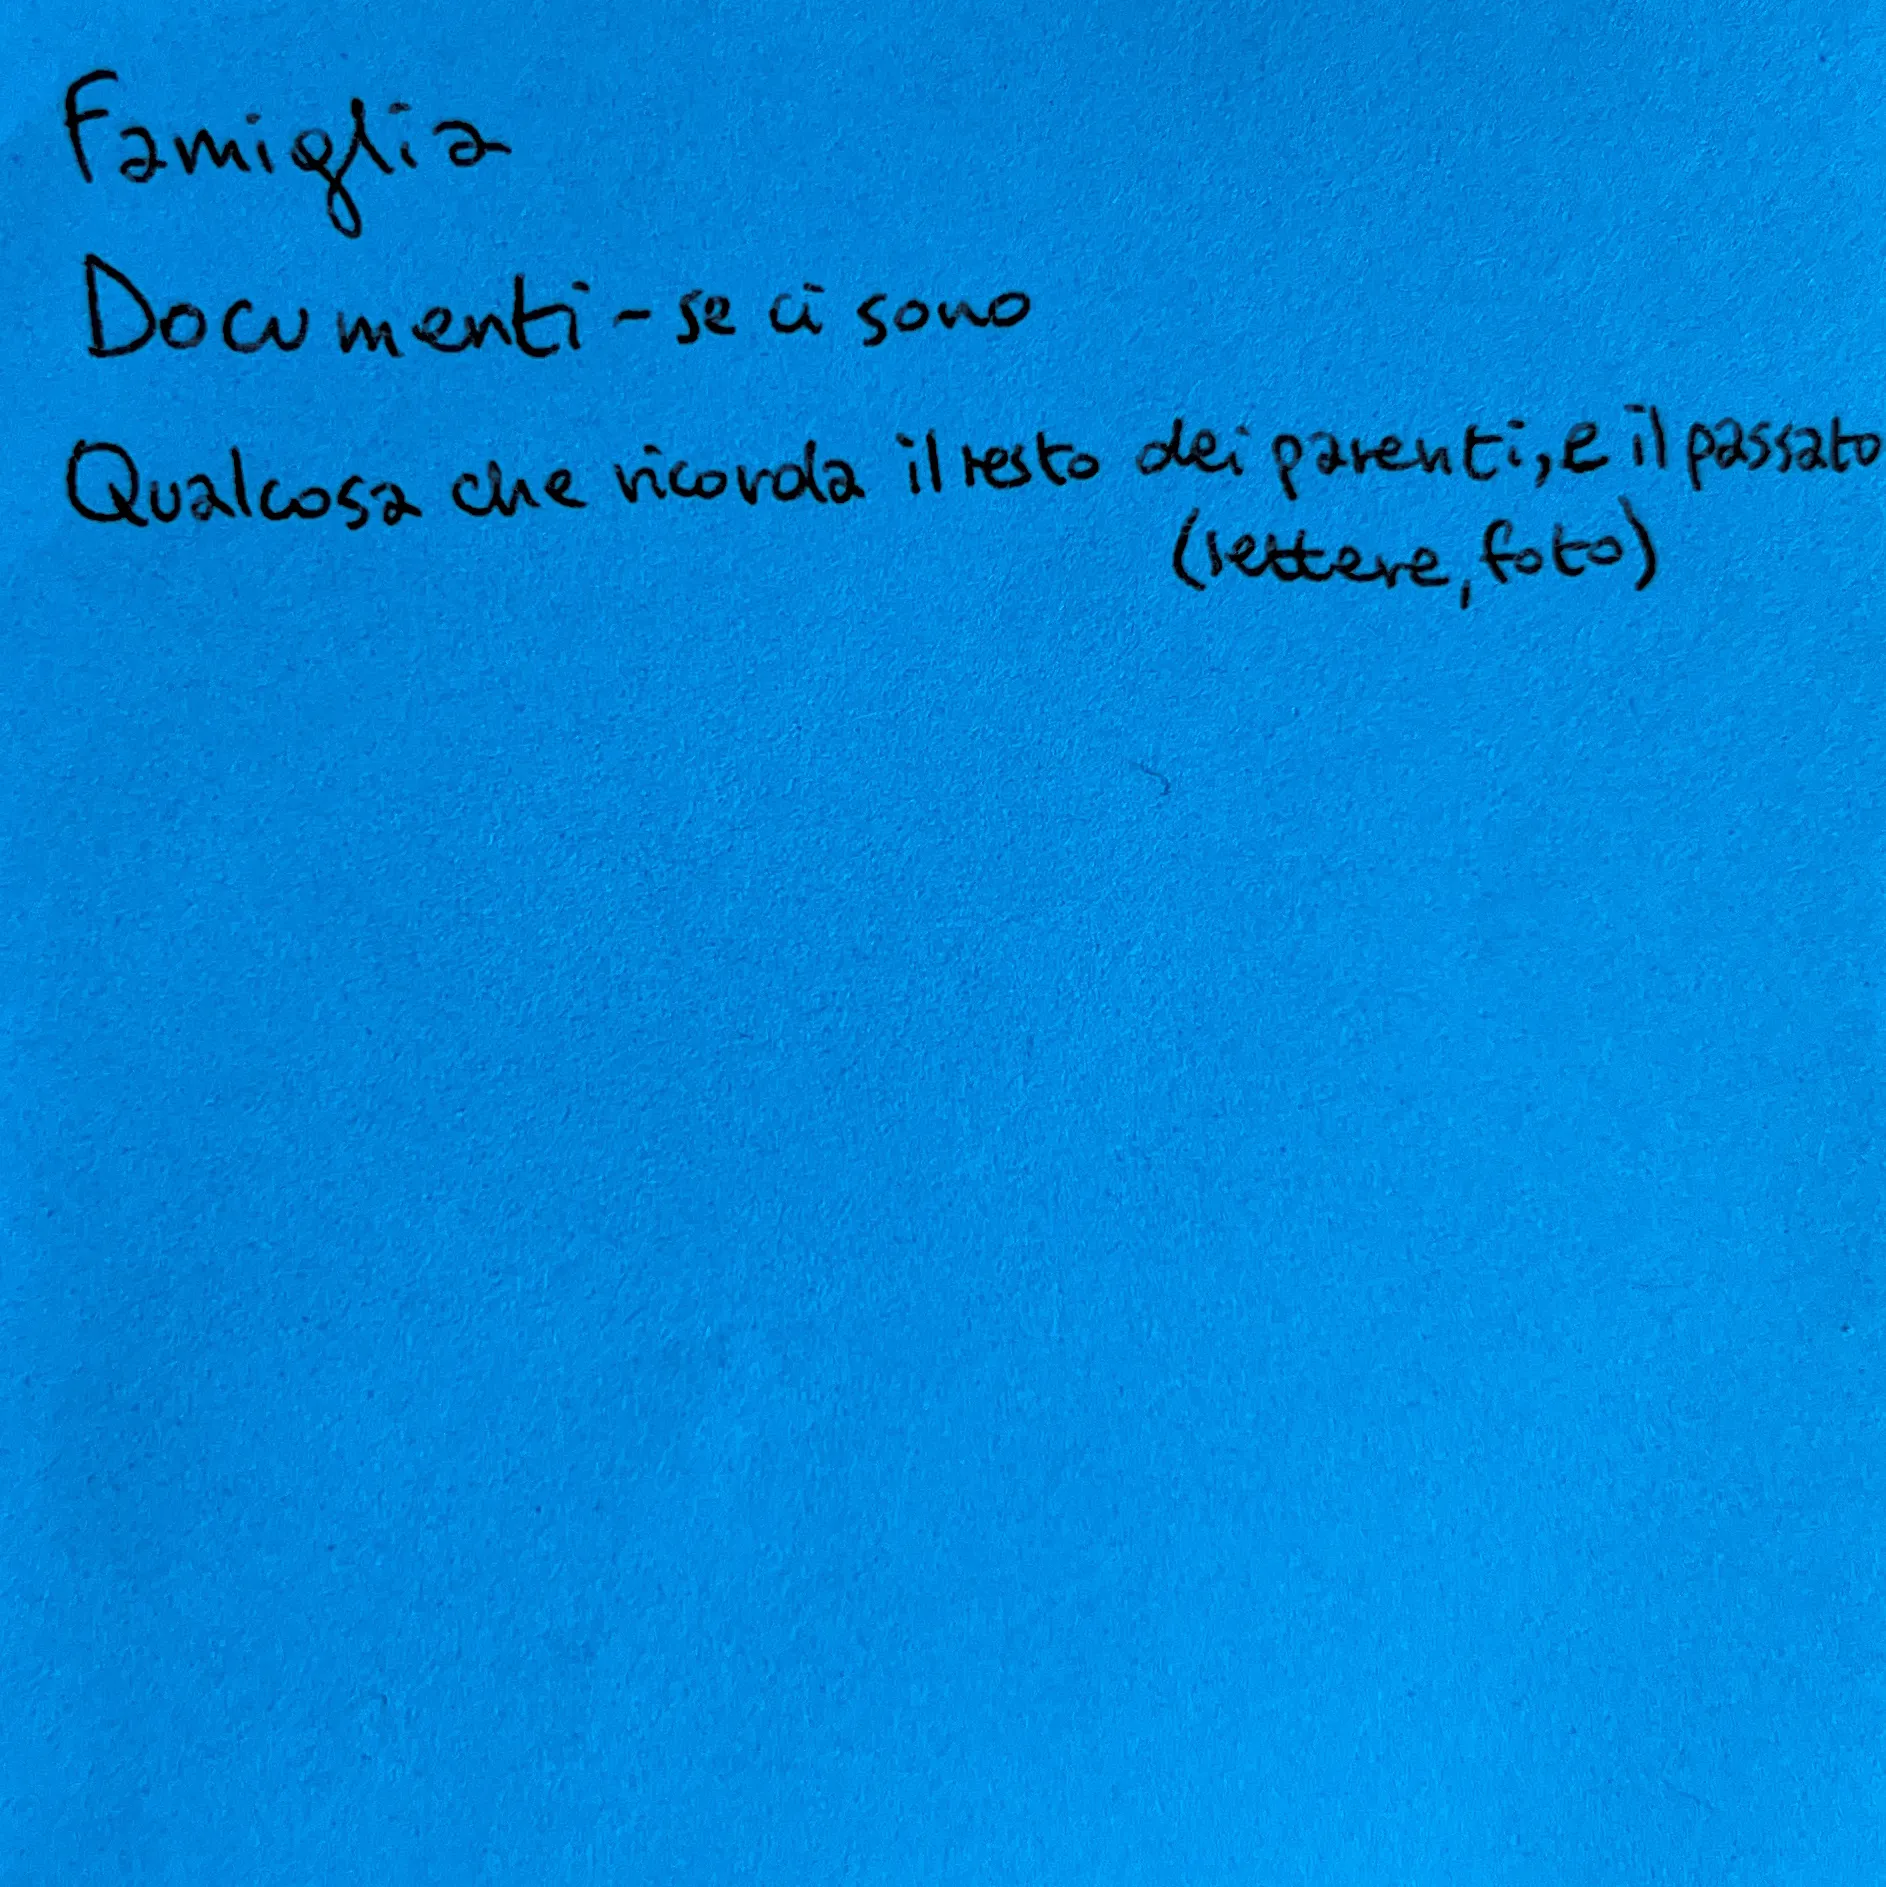 Famiglia
Documenti - se ci sono
Qualcosa che ricorda il resto dei parenti, e il passato
(lettere, foto)